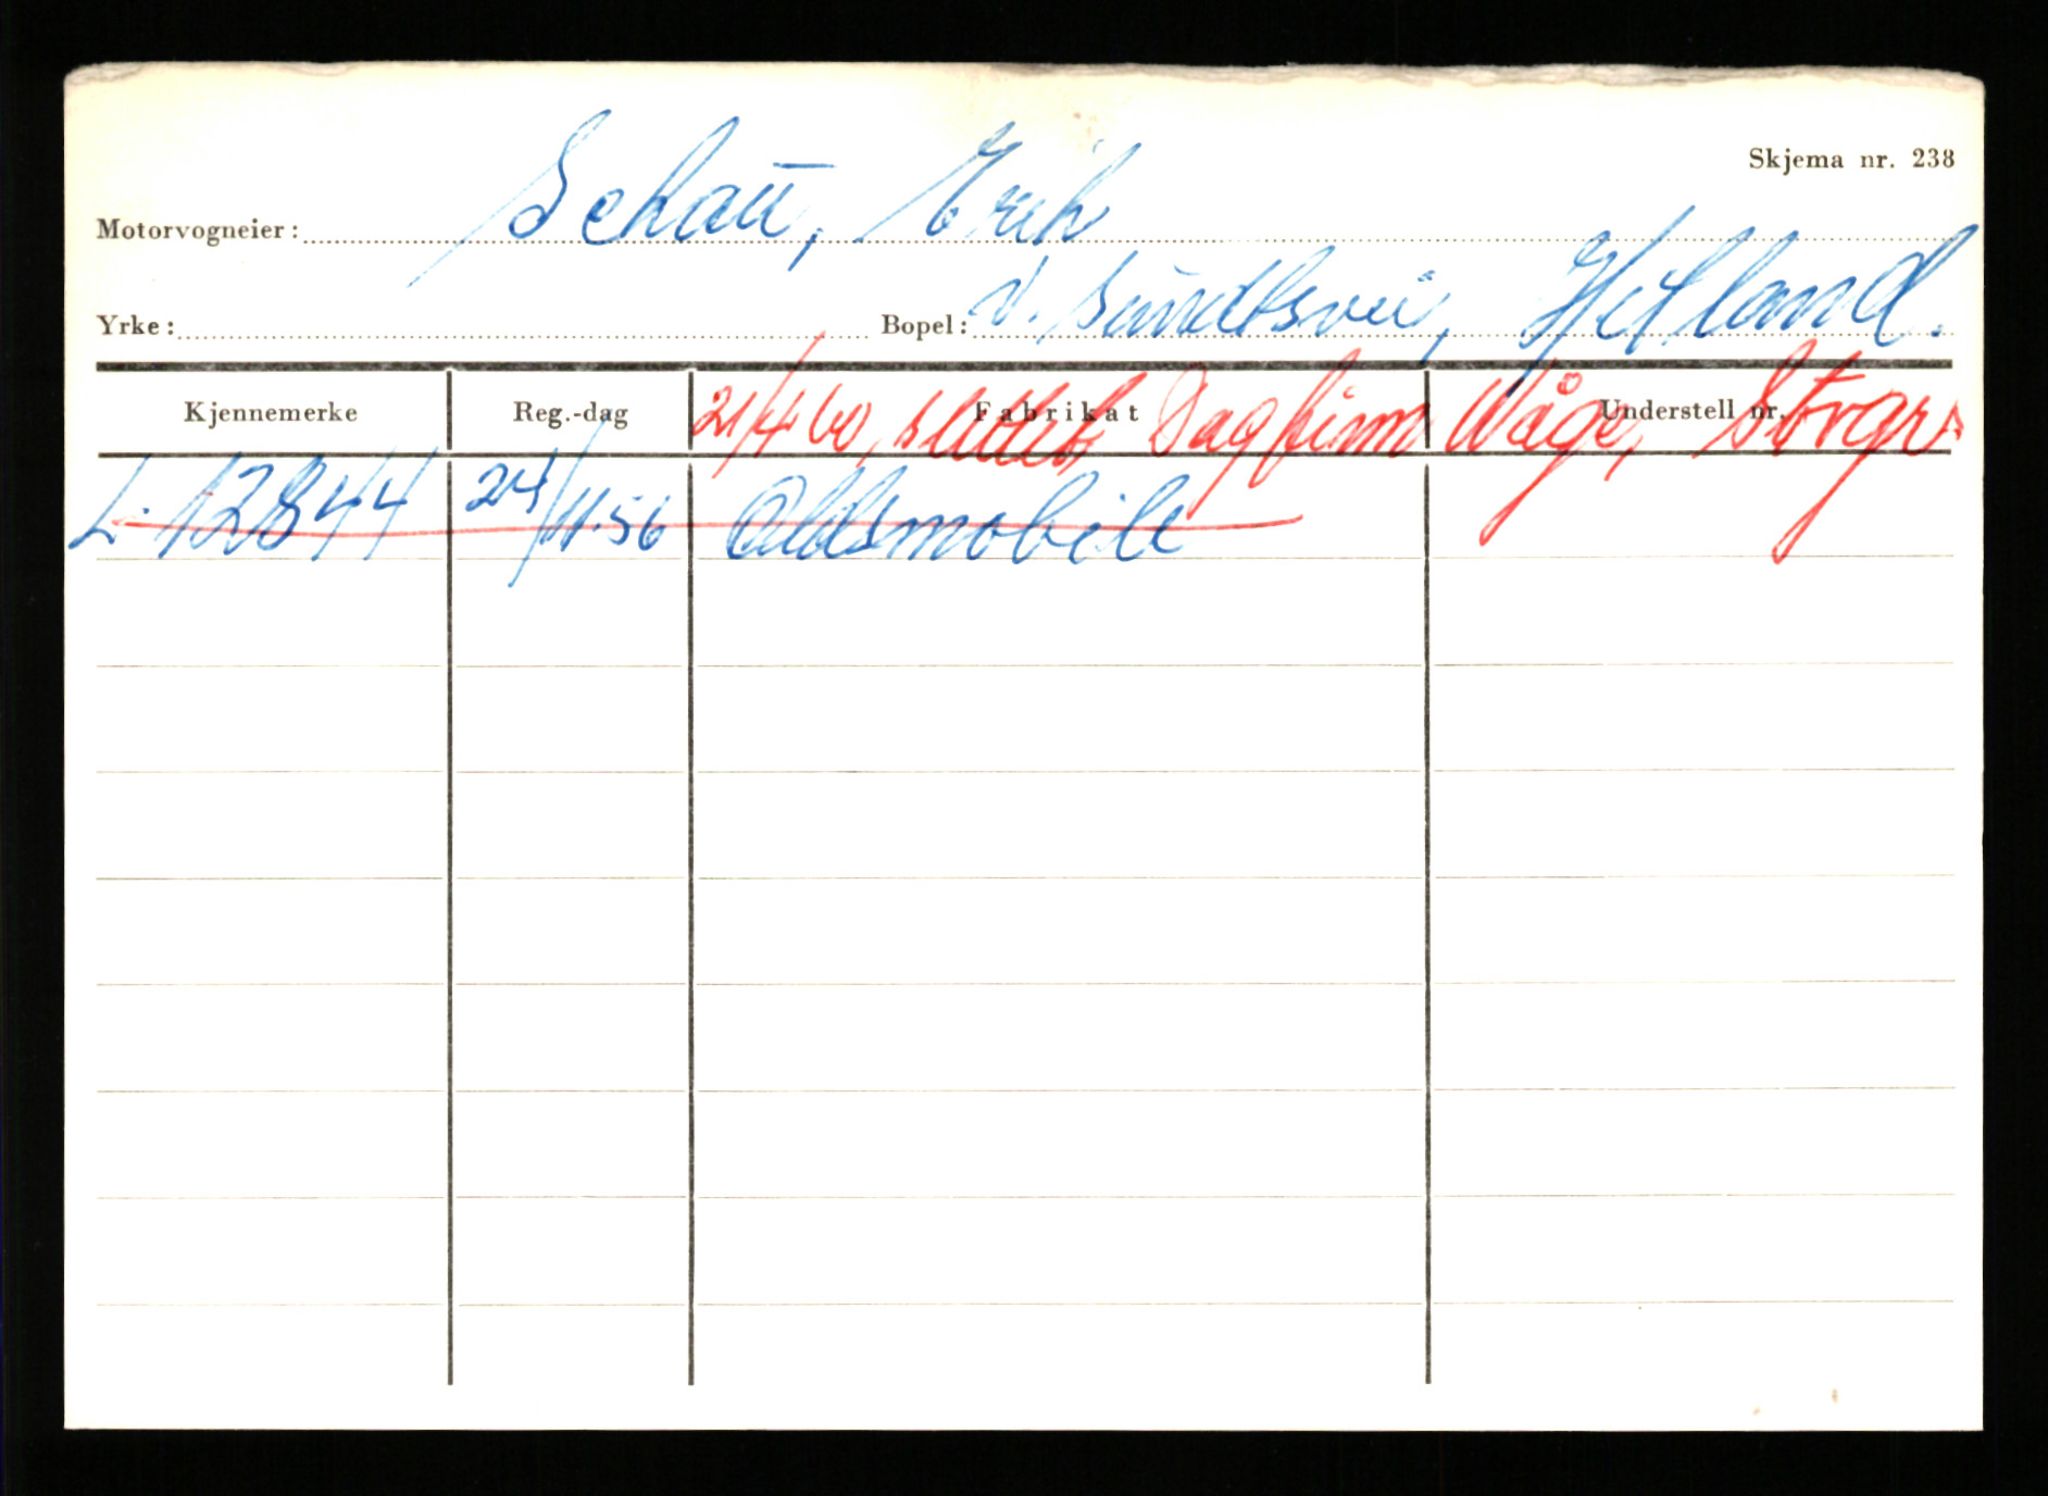 Skjema nr. 238
Motorvogneier: Schau, Erik
Yrke: Bopel: V. Sundtsvei, Hetland.
Kjennemerke Reg.-dag Fabrikat Understell nr.
21/4 60, slettet, Dagfinn Våge, Stvgr.
L-12844 24/11.56 Oldsmobile